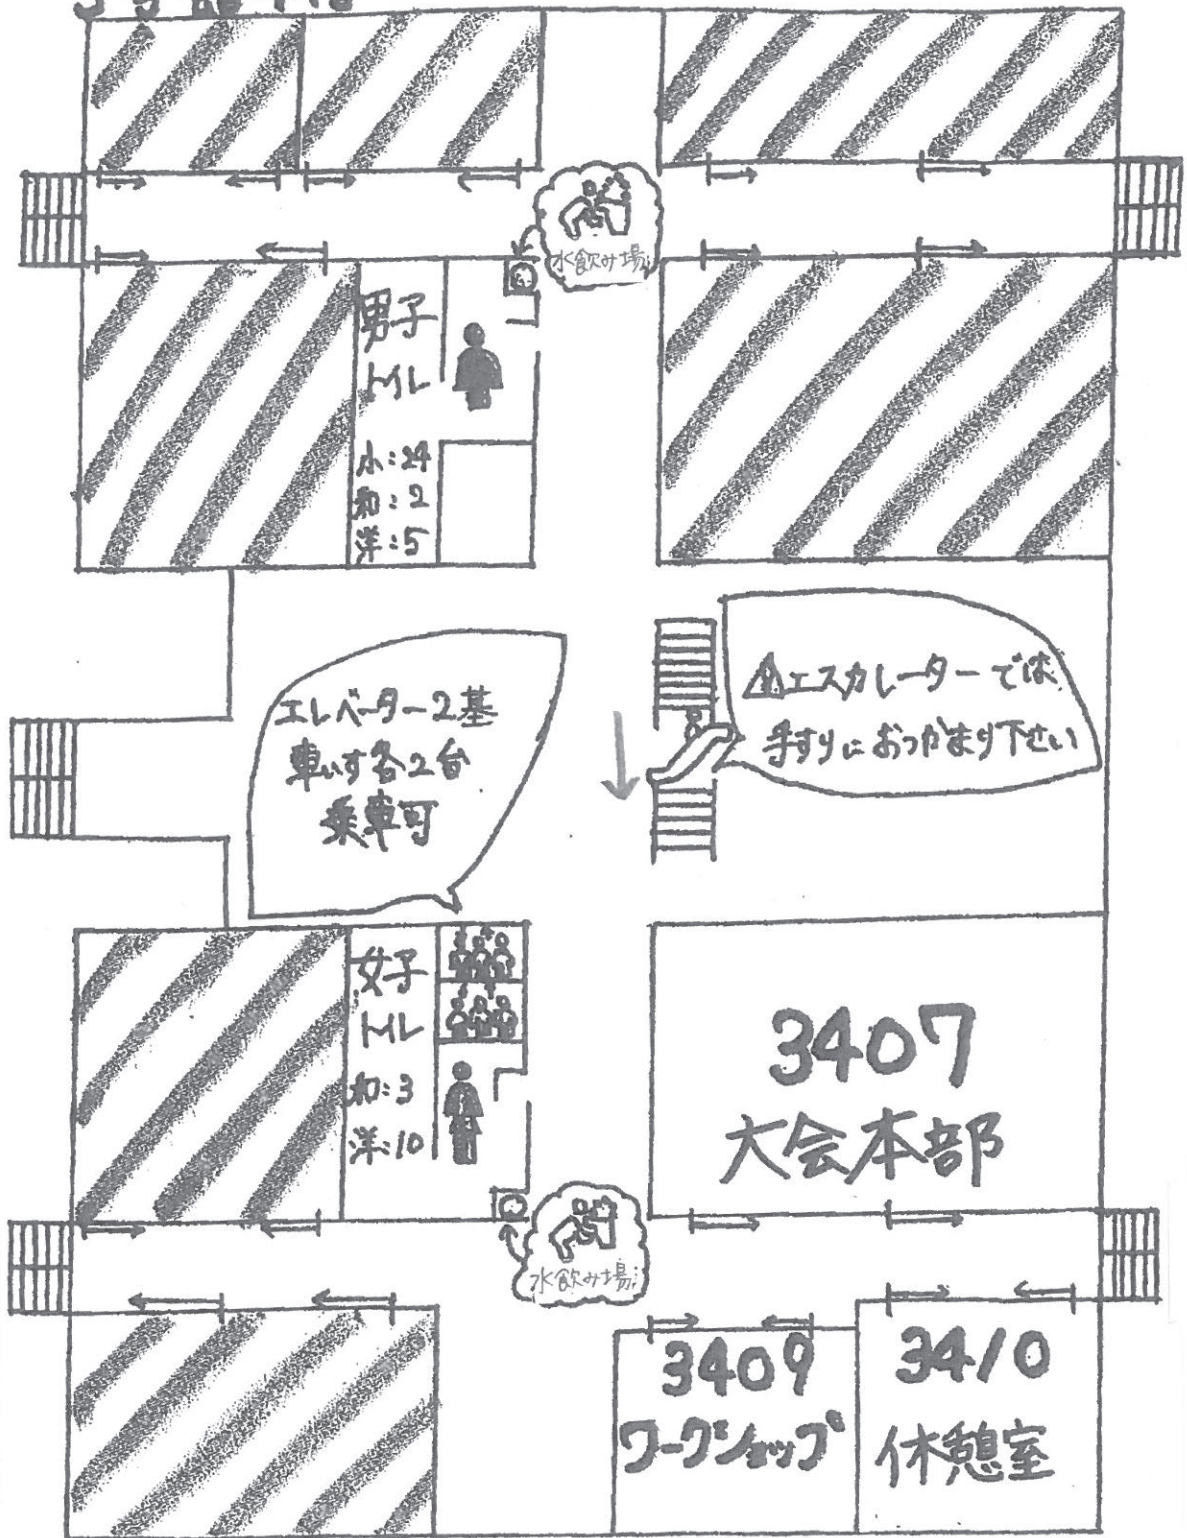 水飲み場
男子
トイレ
小:24
和:2
洋:5
エレベーター2基
車いす各2台
乗車可
エスカレーターでは
手すりにおつかまり下さい
女子
トイレ
和:3
洋:10
3407
大会本部
水飲み場
3409
ワークショップ
3410
休憩室